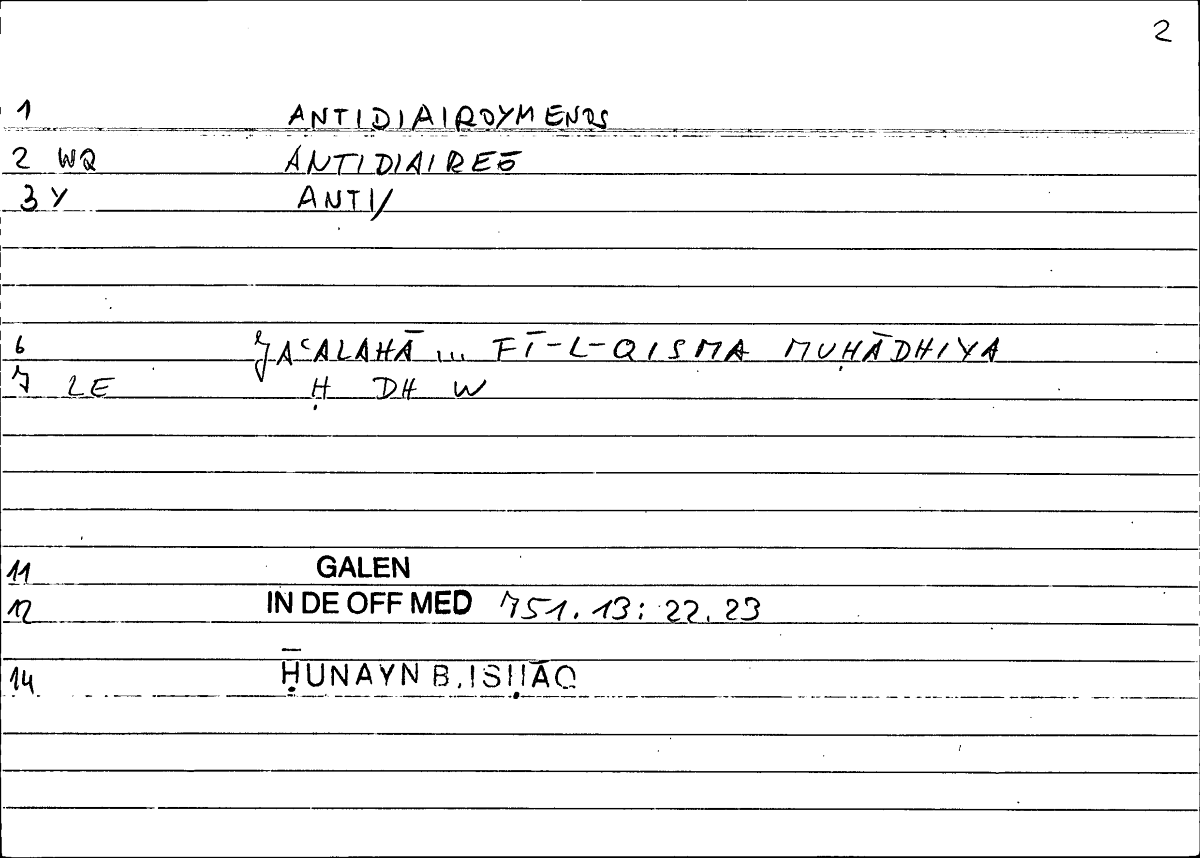 2
1 ANTIDIAIROYMENOS
2 WQ ANTIDIAIREŌ
3 Y ANTI/
6 JAʿALAHĀ ... FĪ-L-QISMA MUḤĀDHIYA
7 LE Ḥ DH W
11 GALEN
12 IN DE OFF MED 751.13: 22.23
14 ḤUNAYN B. ISḤĀQ